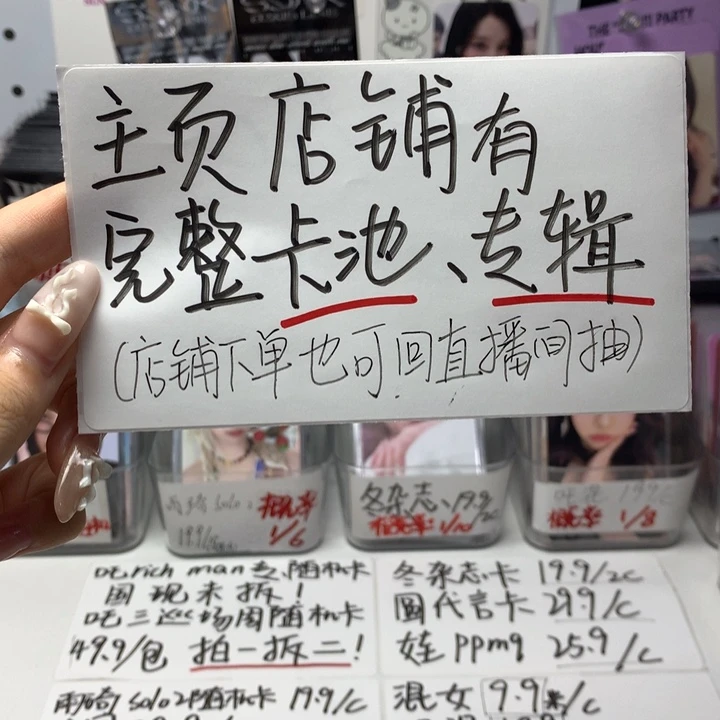 THE PARTY
主页店铺有
完整卡池、专辑
(店铺下单也可回直播间抽)
雨琦 solo2
19.9/
概率 1/6
冬杂志、19.9/2c
概率: 1/10
19.9/c
概率 1/8
吃rich man专、随机卡
国现未拆!
吃三巡场周随机卡
49.9/包 拍一拆二!
冬杂志卡 19.9/2c
圆代言卡 29.9/c
娃ppmg 25.9/c
雨琦solo2随机卡 19.9/c
混女 9.9米/c